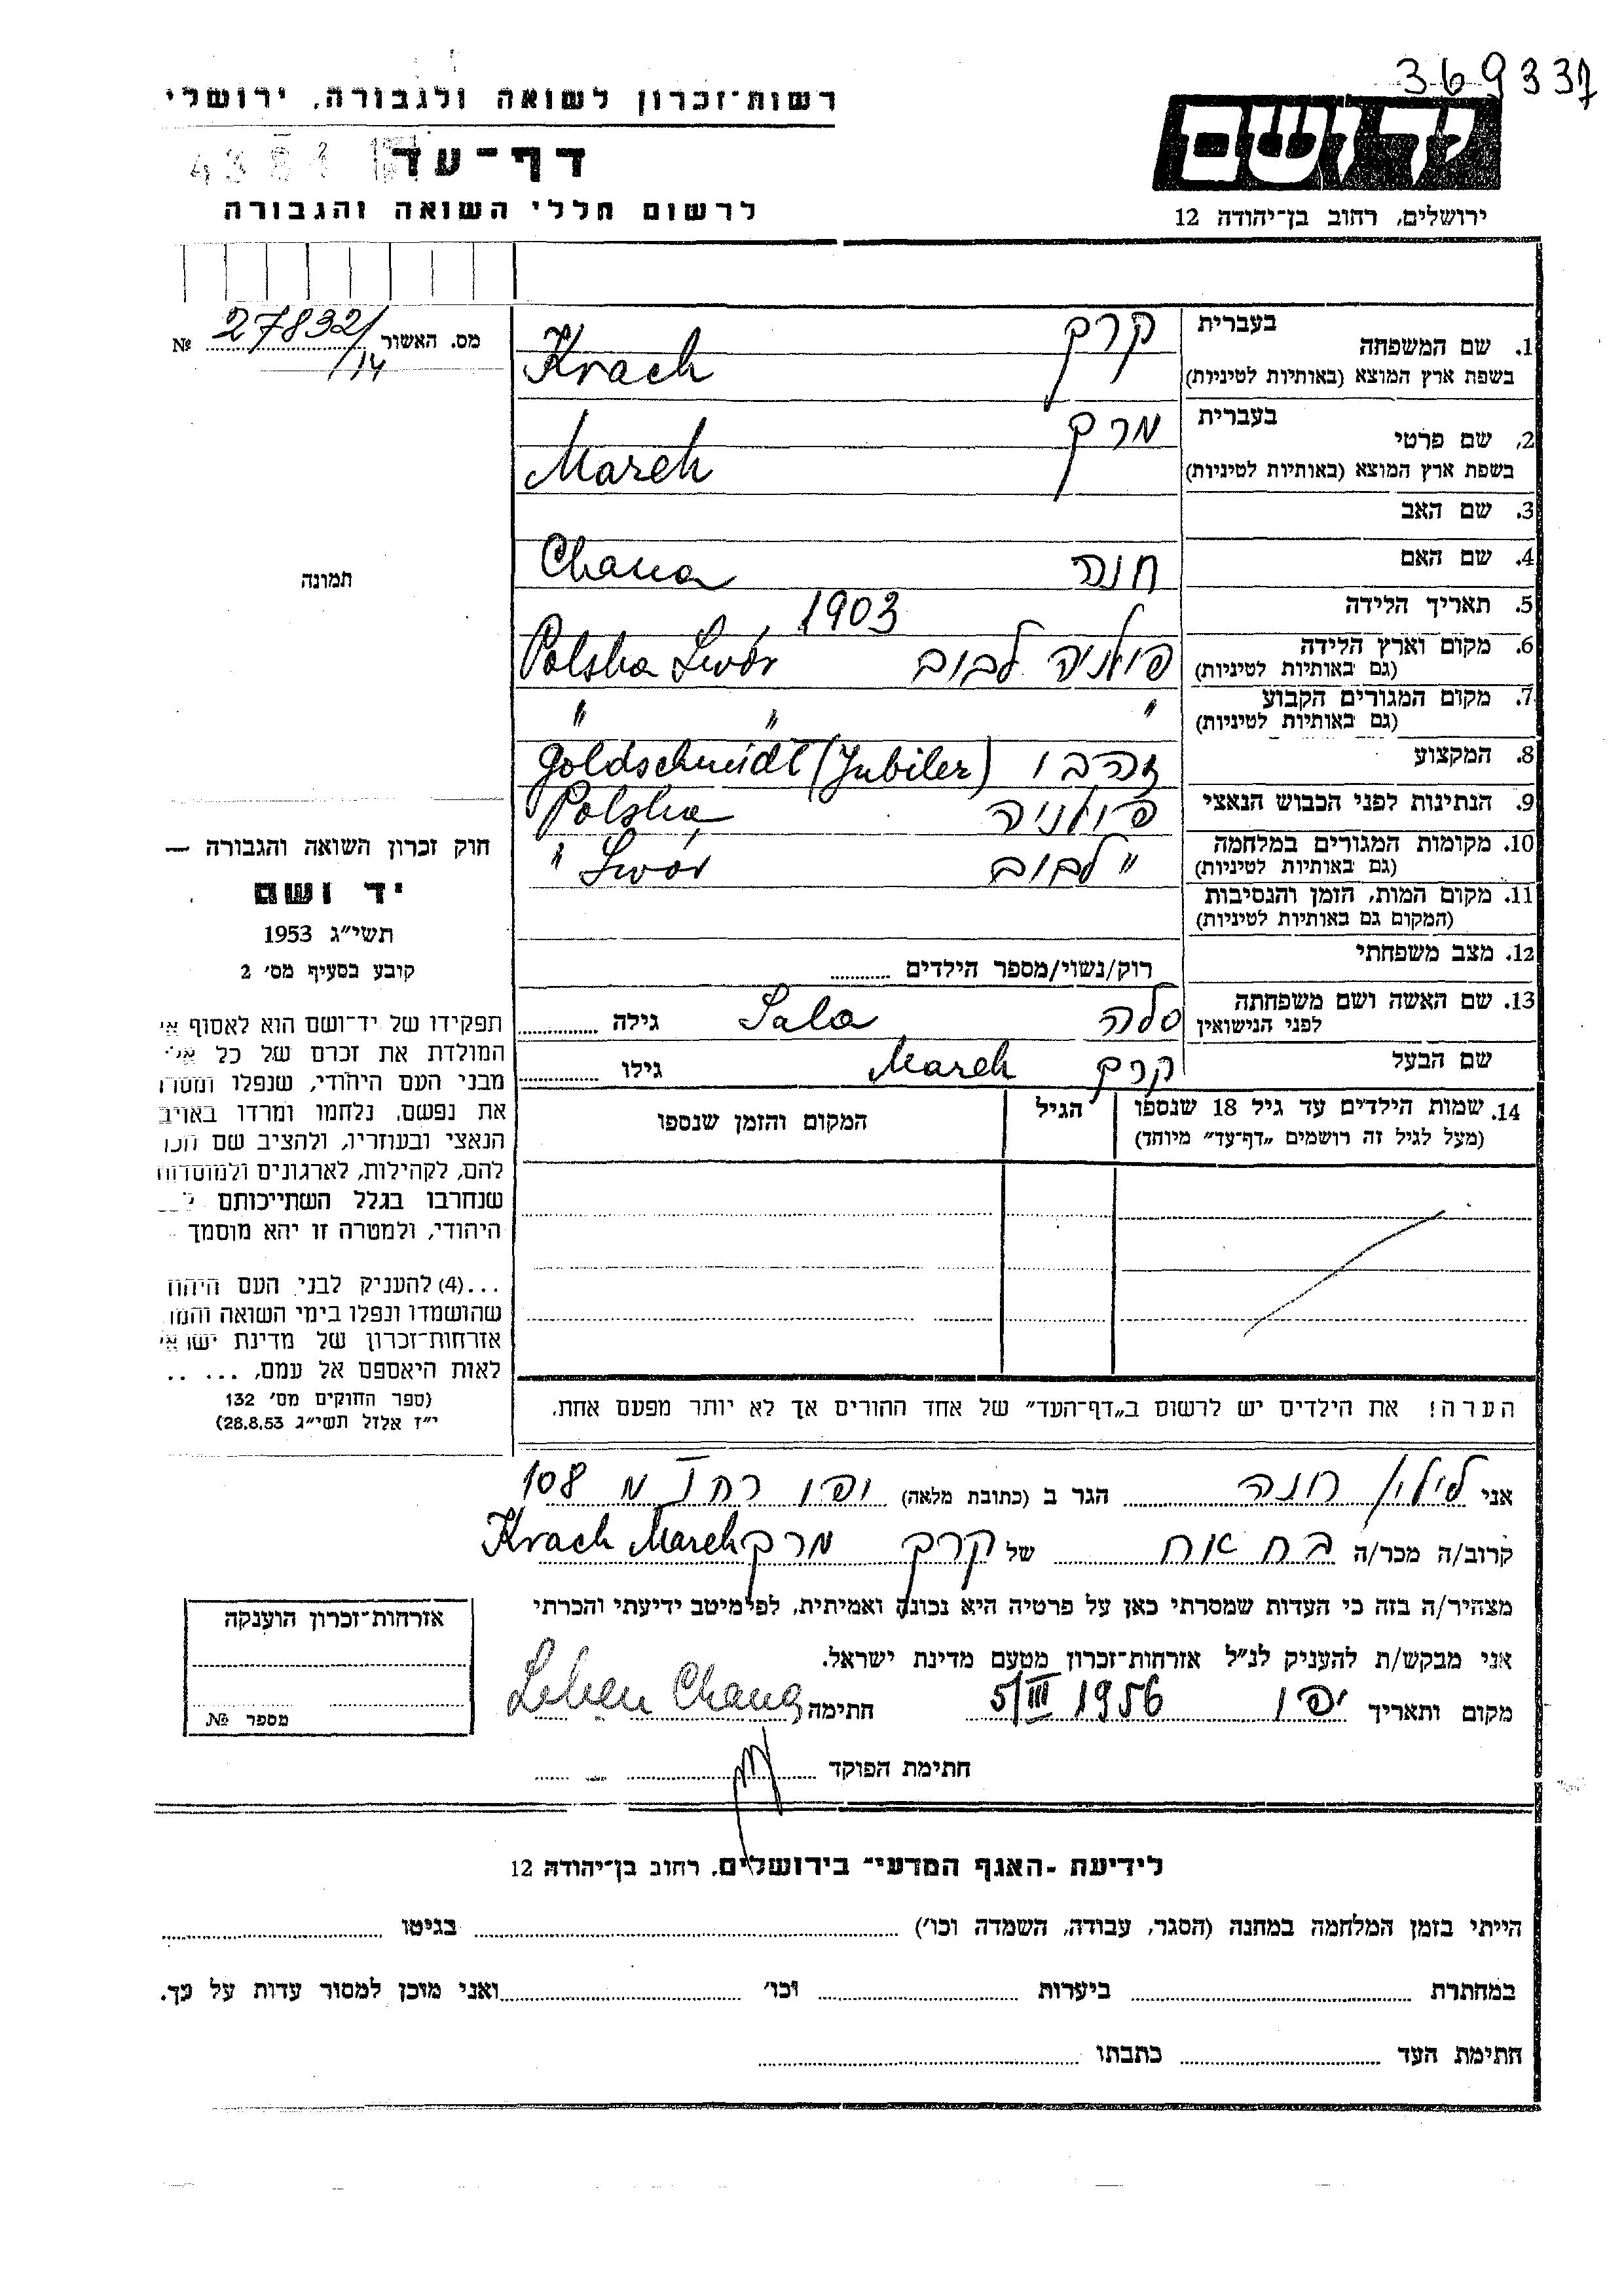 369337
רשות־זכרון לשואה ולגבורה, ירושלי
יד ושם
דף־עד
לרשום חללי השואה והגבורה
ירושלים, רחוב בן־יהודה 12
מס. האשור 27832/14 №
1. שם המשפחה
בעברית קרק
בשפת ארץ המוצא (באותיות לטיניות) Krach
2. שם פרטי
בעברית מרק
בשפת ארץ המוצא (באותיות לטיניות) Marek
3. שם האב
4. שם האם חנה Chana
5. תאריך הלידה 1903
6. מקום וארץ הלידה פולניה לבוב Polska Lwów
(גם באותיות לטיניות)
7. מקום המגורים הקבוע " " "
(גם באותיות לטיניות)
8. המקצוע Goldschmidt (Jubiler)
9. הנתינות לפני הכבוש הנאצי פולניה Polska
10. מקומות המגורים במלחמה " לבוב " Lwów
(גם באותיות לטיניות)
11. מקום המות, הזמן והנסיבות
(המקום גם באותיות לטיניות)
12. מצב משפחתי רוק/נשוי/מספר הילדים
13. שם האשה ושם משפחתה סלה Sala גילה
לפני הנישואין
שם הבעל קרק Marek גילו
14. שמות הילדים עד גיל 18 שנספו הגיל המקום והזמן שנספו
(מעל לגיל זה רושמים „דף־עד" מיוחד)
הערה! את הילדים יש לרשום ב„דף־העד" של אחד ההורים אך לא יותר מפעם אחת.
תמונה
חוק זכרון השואה והגבורה —
יד ושם
תשי"ג 1953
קובע בסעיף מס׳ 2
תפקידו של יד־ושם הוא לאסוף א
המולדת את זכרם של כל אל
מבני העם היהודי, שנפלו ומסרו
את נפשם, נלחמו ומרדו באויב
הנאצי ובעוזריו, ולהציב שם וזכר
להם, לקהילות, לארגונים ולמוסדות
שנחרבו בגלל השתייכותם
היהודי, ולמטרה זו יהא מוסמך
...(4) להעניק לבני העם היהוד
שהושמדו ונפלו בימי השואה והמר
אזרחות־זכרון של מדינת ישראל
לאות היאספם אל עמם, ...
(ספר החוקים מס׳ 132
י"ז אלול תשי"ג 28.8.53)
אני חנה הגר ב (כתובת מלאה) יפו 108
קרוב/ה מכר/ה בת אח של קרק מרק Krach Marek
מצהיר/ה בזה כי העדות שמסרתי כאן על פרטיה היא נכונה ואמיתית, לפי מיטב ידיעתי והכרתי
אני מבקש/ת להעניק לנ"ל אזרחות־זכרון מטעם מדינת ישראל.
מקום ותאריך יפו 5/III 1956 חתימה Chana
חתימת הפוקד
אזרחות־זכרון הוענקה
מספר №
לידיעת ־האגף המדעי־ בירושלים, רחוב בן־יהודה 12
הייתי בזמן המלחמה במחנה (הסגר, עבודה, השמדה וכו׳) בגיטו
במחתרת ביערות וכו׳ ואני מוכן למסור עדות על כך.
חתימת העד כתבתו